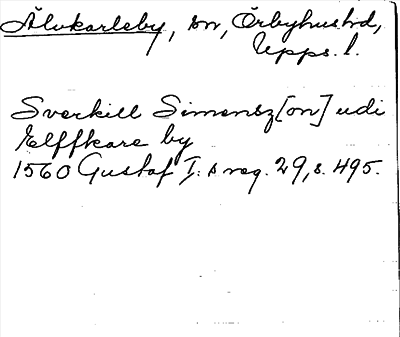 Älvkarleby, sn, Örbyhus hd,
Upps. l.
Sverkill Simonsz[on] udi
Elffkare by
1560 Gustaf I:s reg. 29, s. 495.